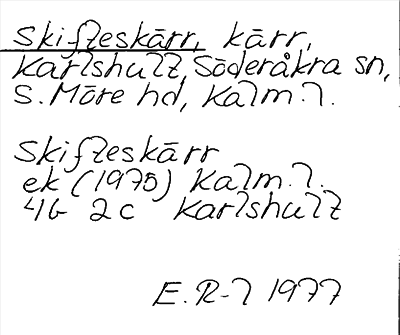 Skifteskärr, kärr,
Karlshult, Söderåkra sn,
S. Möre hd, Kalm. l.
Skifteskärr
ek (1975) Kalm. l.
4G 2c Karlshult
E. R-l 1977